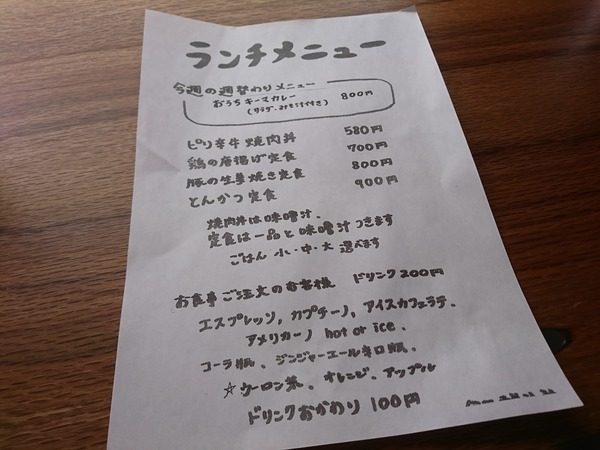 ランチメニュー
今週の週替わりメニュー
おうちキーマカレー 800円
(サラダ・みそ汁付き)
ピリ辛牛焼肉丼 580円
鶏の唐揚げ定食 700円
豚の生姜焼き定食 800円
とんかつ定食 900円
焼肉丼は味噌汁、
定食は一品と味噌汁つきます
ごはん 小・中・大 選べます
お食事ご注文のお客様 ドリンク200円
エスプレッソ, カプチーノ, アイスカフェラテ、
アメリカーノ hot or ice、
コーラ瓶、ジンジャーエール辛口瓶、
☆ウーロン茶、オレンジ、アップル
ドリンクおかわり 100円